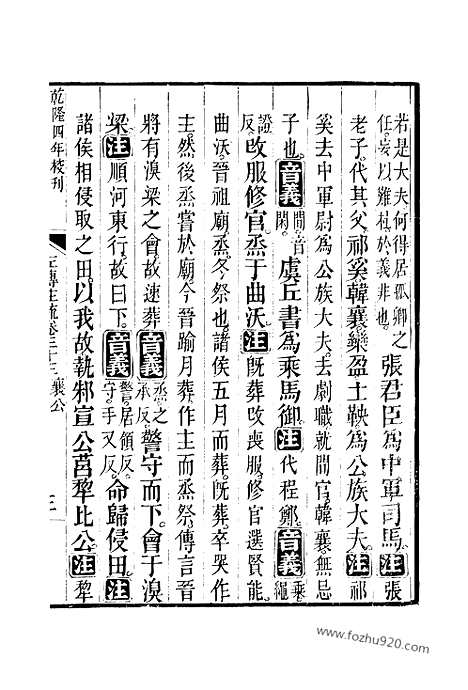 若是大夫何得居孤卿之
任妄以雞札於義非也
張君臣爲中軍司馬注張
老子代其父祁奚韓襄欒盈士鞅爲公族大夫注祁
奚去中軍尉爲公族大夫去劇職就閒官韓襄無忌
子也音義閒音閑
虞丘書爲乘馬御注代程鄭音義乘繩
證反
改服修官烝于曲沃注既葬改喪服修官選賢能
曲沃晉祖廟烝冬祭也諸侯五月而葬既葬卒哭作
主然後烝嘗於廟今晉踰月葬作主而烝祭傳言晉
將有溴梁之會故速葬音義烝之承反
警守而下會于溴
梁注順河東行故曰下音義警居領反守手又反
命歸侵田注
諸侯相侵取之田以我故執邾宣公莒犂比公注犂
乾隆四年校刊
左傳注疏卷三十三襄公
www.fozhu920.com